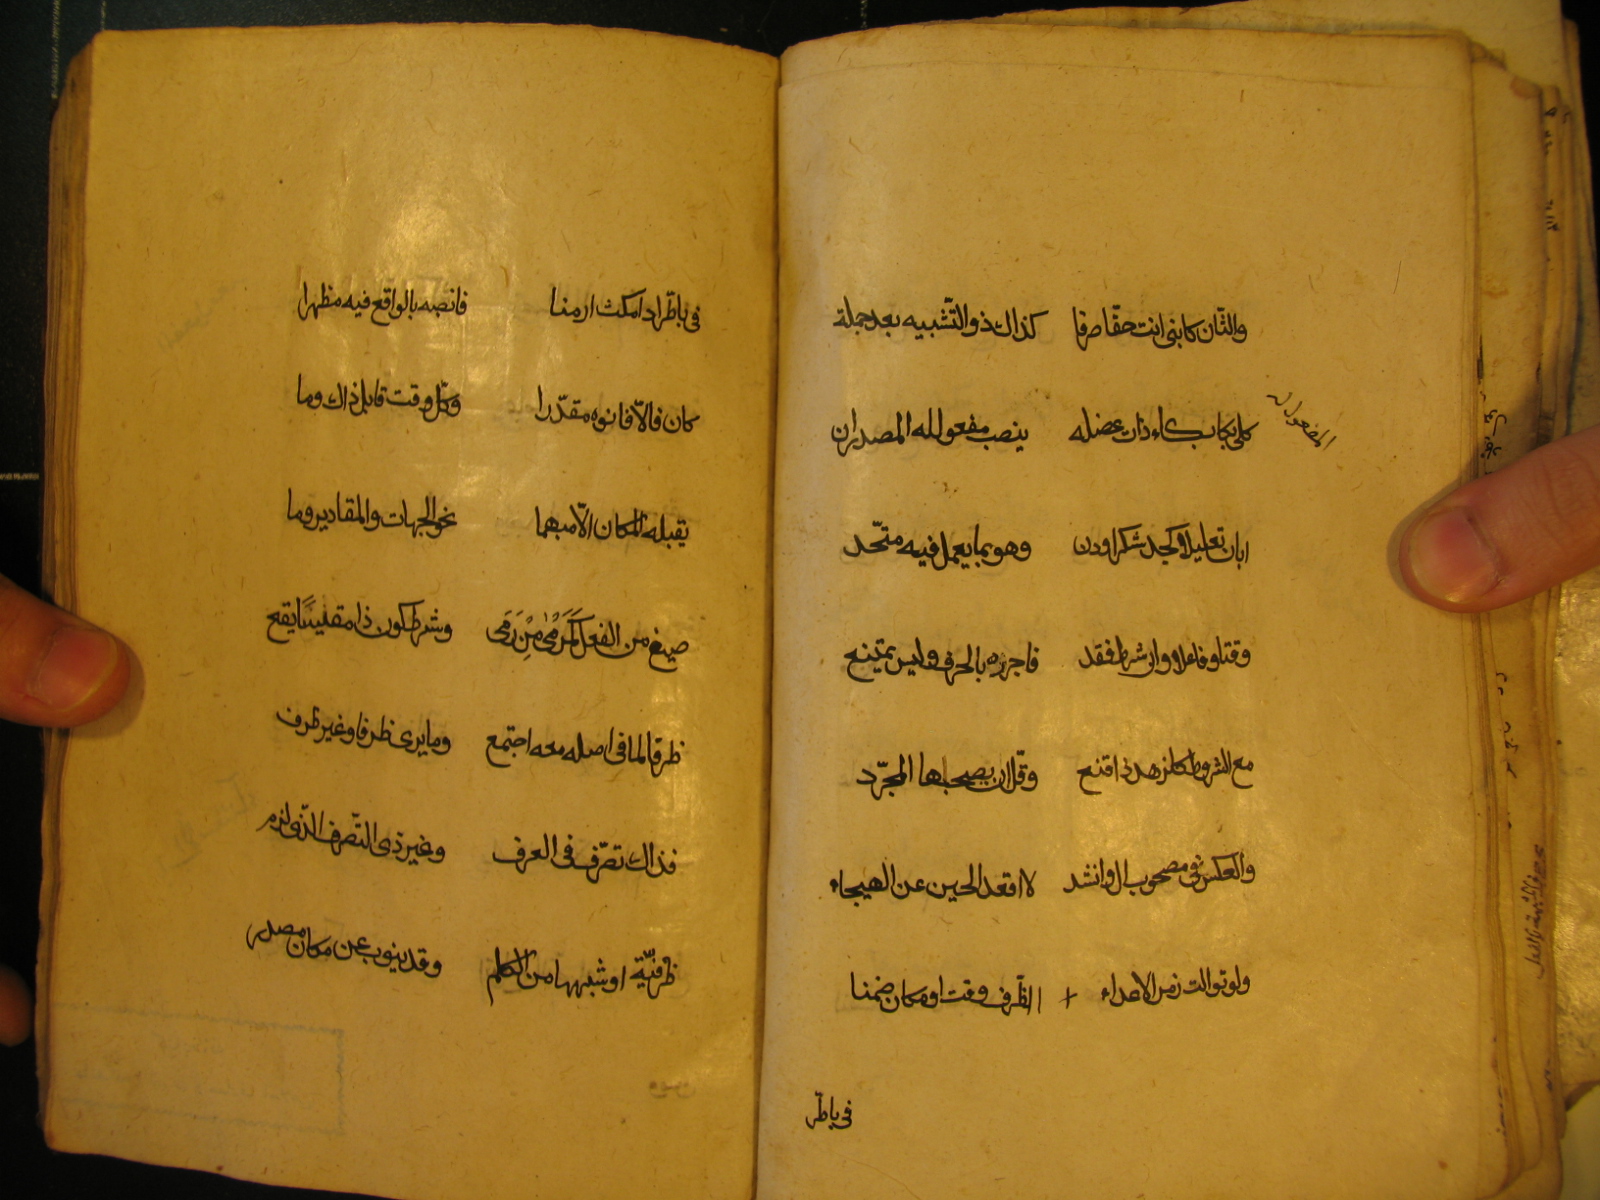 والثان كابنى انت حقا صرفا   كذاك ذو التّشبيه بعد جملة
المفعول له
كلى بكا بكاء ذات عضله   ينصب مفعولا له المصدر ان
ابان تعليلا كجد شكرا ودن   وهو بما يعمل فيه متّحد
وقتا وفاعلا وان شرط فقد   فاجرره بالحرف وليس يمتنع
مع الشروط كلزهد ذا قنع   وقل ان يصحبها المجرّد
والعكس فى مصحوب ال وانشد   لا اقعد الجبن عن الهيجاء
ولو توالت زمر الاعداء + الظّرف وقت او مكان ضمنا
فى باطّر
فى باطّراد امكث ازمنا   فانصبه بالواقع فيه مظهرا
كان فالاّ فانوه مقدّرا   وكلّ وقت قابل ذاك وما
يقبله المكان الاّ مبهما   نحو الجهات والمقادير وما
صيغ من الفعل كَمَرْمًى مِنْ رَمَى   وشرط كون ذا مقيسًا يقع
ظرفا لما فى اصله معه اجتمع   وما يرى ظرفا وغير ظرف
فذاك تصرّف فى العرف   وغير ذى التّصرف الّذى لزم
ظرفيّة او شبهها من الكلم   وقد ينوب عن مكان مصدر